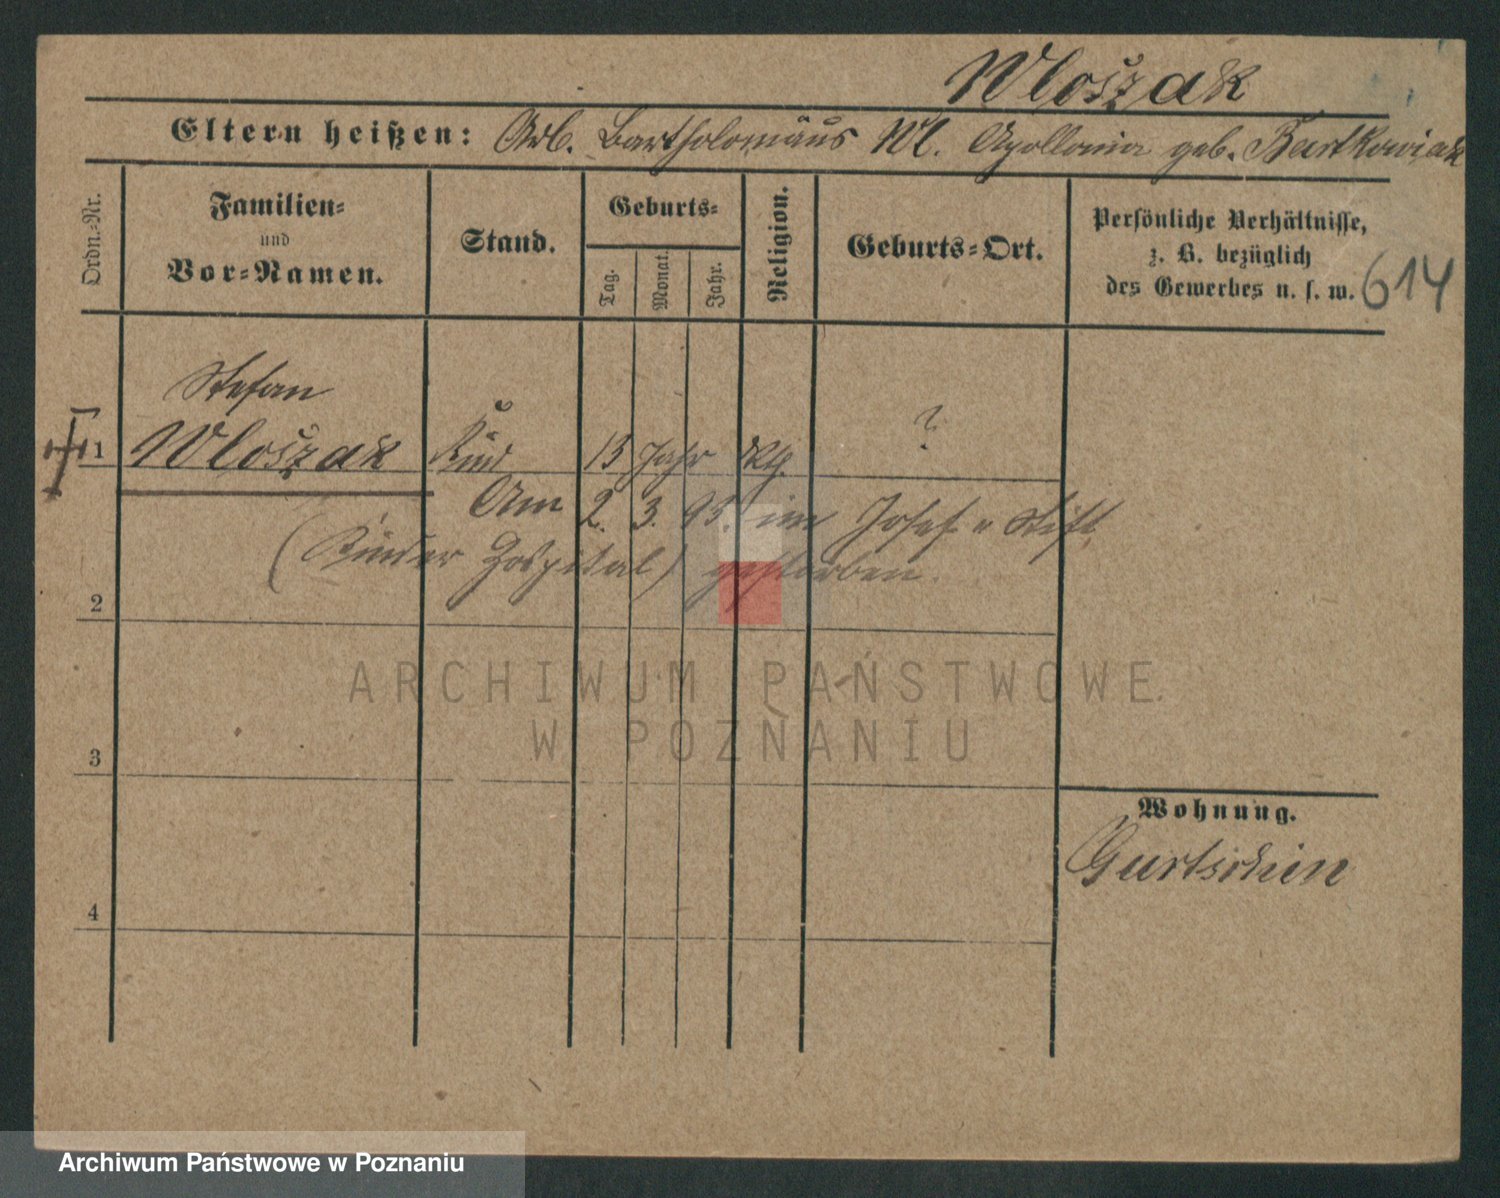 Wloszak
Eltern heißen: Arb. Bartholomäus Wl. Apollonia geb. Bartkowiak
Ordn.-Nr.
Familien-
und
Vor-Namen.
Stand.
Geburts-
Tag.
Monat.
Jahr.
Religion.
Geburts-Ort.
Persönliche Verhältnisse,
z. B. bezüglich
des Gewerbes u. s. w.
614
Stefan
1 Wloszak Kind 13 Jahr kth. ?
Am 2. 3. 95. im Josef Stift
(Kinder Hospital) gestorben.
2
ARCHIWUM PAŃSTWOWE
W POZNANIU
3
Wohnung.
Gurtschin
4
Archiwum Państwowe w Poznaniu